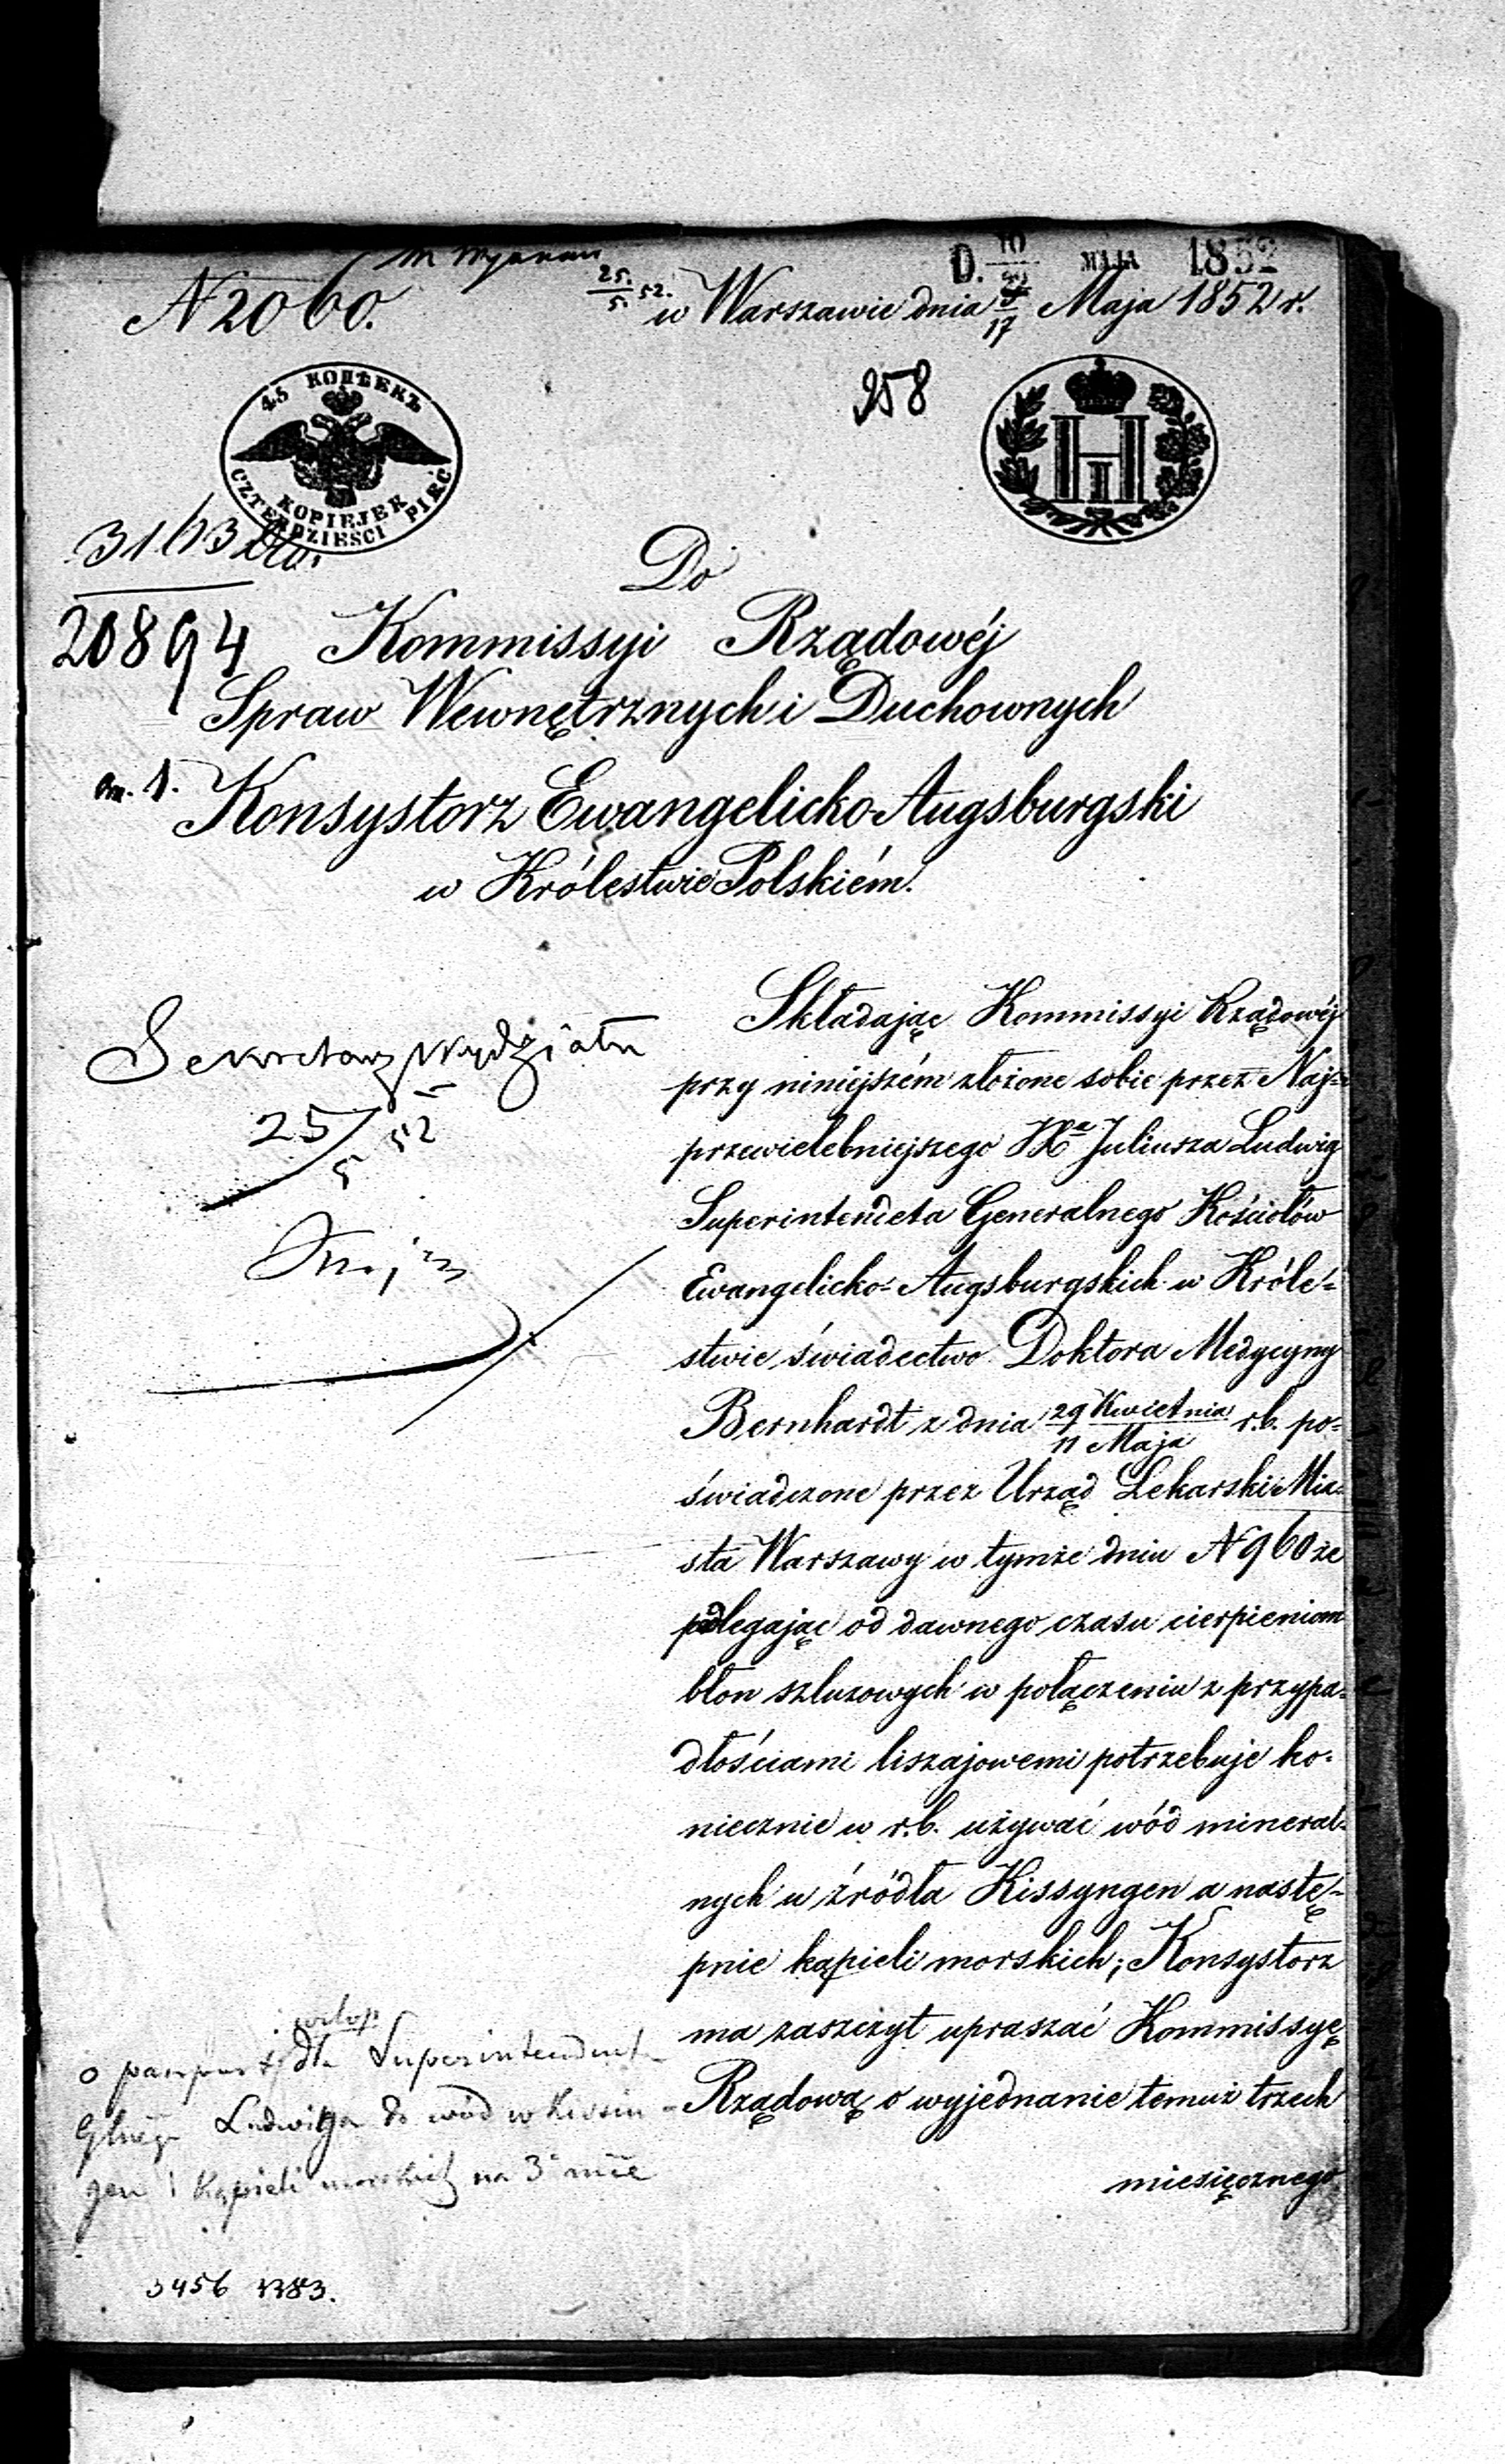 D. 10 MAJA 1852
25./5. 52.
N 2060.
w Warszawie dnia 5/17 Maja 1852 r.
958
45 КОПѢЕКЪ
KOPIEJEK
CZTERDZIEŚCI PIĘĆ
H
I
3163
Do
20894
Kommissyi Rządowéj
Spraw Wewnętrznych i Duchownych
1.
Konsystorz Ewangelicko-Augsburgski
w Królestwie Polskiém.
Sekretarz Wydziału
25/5 52
Składając Kommissyi Rządowéj
przy niniejszém złożone sobie przez Naj=
przewielebniejszego Xa Juliusza Ludwig
Superintendeta Generalnego Kościołów
Ewangelicko-Augsburgskich w Króle=
stwie świadectwo Doktora Medycyny
Bernhardt z dnia 29 Kwietnia/11 Maja r.b. po=
świadczone przez Urząd Lekarski Mia=
sta Warszawy w tymże dniu N 960 że
podlegając od dawnego czasu cierpieniom
błon szluzowych w połączeniu z przypa=
dłościami liszajowemi potrzebuje ko=
niecznie w r.b. używać wód mineral=
nych u źródła Kissyngen a nastę=
pnie kąpieli morskich; Konsystorz
ma zaszczyt upraszać Kommissyę
Rządową o wyjednanie temuż trzech
miesięcznego
o paszport dla Superintendent
Ludwiga do wód w Kissin=
gen i kąpieli morskich na 3
3456 1783.